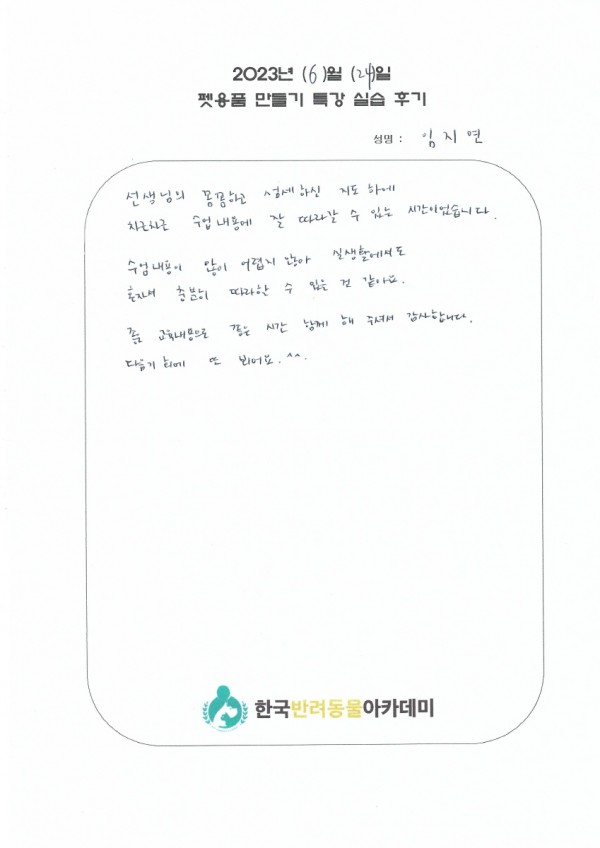 2023년 (6)월 (24)일
펫용품 만들기 특강 실습 후기
성명 : 임지연
선생님의 꼼꼼하고 섬세하신 지도 하에
차근차근 수업 내용에 잘 따라갈 수 있는 시간이었습니다.
수업내용이 많이 어렵지 않아 실생활에서도
혼자서 충분히 따라할 수 있을 건 같아요.
좋은 교육내용으로 좋은 시간 함께 해 주셔서 감사합니다.
다음기회에 또 뵈어요. ^^.
한국반려동물아카데미